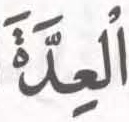 الْعِدَّةَ